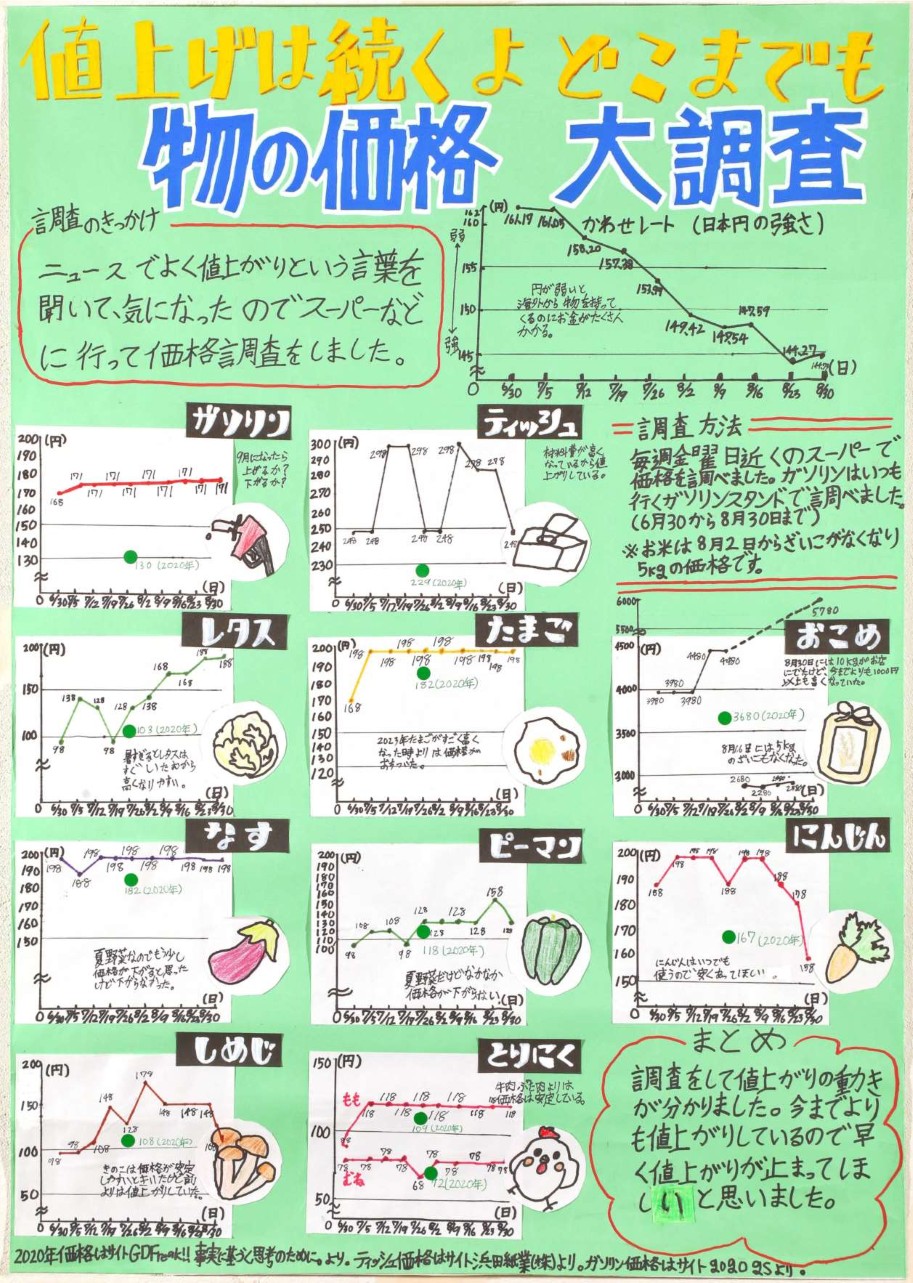 値上げは続くよ どこまでも
物の価格 大調査
調査のきっかけ
ニュースでよく値上がりという言葉を
聞いて、気になったのでスーパーなど
に行って価格調査をしました。
かわせレート (日本円の強さ)
(円)
弱
強
162
160
155
150
145
161.19
161.05
158.20
157.38
153.99
149.42
147.54
147.59
144.27
円が弱いと、
海外から物を持って
くるのにお金がたくさん
かかる。
6/30 7/5 7/12 7/19 7/26 8/2 8/9 8/16 8/23 8/30 (日)
調査方法
毎週金曜日近くのスーパーで
価格を調べました。ガソリンはいつも
行くガソリンスタンドで調べました
(6月30から8月30日まで)
※お米は8月2日からざいこがなくなり
5kgの価格です。
ガソリン
200 (円)
190
180
170
150
140
130
0
168 171 171 171 171 171 171 171 171 171
9月になったら
上がるか?
下がるか?
130 (2020年)
(日)
6/30 7/5 7/12 7/19 7/26 8/2 8/9 8/16 8/23 8/30
ティッシュ
300 (円)
290
280
270
260
250
240
230
0
248 248 298 298 248 248 298 298
材料費が高く
なっているから値
上がりしている。
229 (2020年)
(日)
6/30 7/5 7/12 7/19 7/26 8/2 8/9 8/16 8/23 8/30
レタス
200 (円)
150
100
0
98 138 128 98 128 138 168 168 188 188
103 (2020年)
暑すぎるとレタスは、
すぐ
高くなりやすい。
(日)
6/30 7/5 7/12 7/19 7/26 8/2 8/9 8/16 8/23 8/30
たまご
200 (円)
190
180
170
160
150
130
120
0
168 198 198 198 198 198 198 198 198 198
182 (2020年)
2023年たまごがすごく高く
なった時よりは価格が
おちついた。
(日)
6/30 7/5 7/12 7/19 7/26 8/2 8/9 8/16 8/23 8/30
おこめ
6000
5500
4500 (円)
4000
3500
3000
0
3980 3980 3980 4480 4480
5780
8月30日には10kgがお店
にでたけど、今までよりも1000円
以上も高くなっていた。
3680 (2020年)
8月16日には5kg
のざいこもなくなった。
2680
2280
(日)
6/30 7/5 7/12 7/19 7/26 8/2 8/9 8/16 8/23 8/30
なす
200 (円)
190
180
170
160
150
0
198 188 198 198 198 198 198 198 198 198
182 (2020年)
夏野菜なのでもう少し
価格が下がると思った
けど下がらなかった。
(日)
6/30 7/5 7/12 7/19 7/26 8/2 8/9 8/16 8/23 8/30
ピーマン
200 (円)
190
180
170
160
150
140
130
120
110
100
0
98 108 108 98 128 128 128 128 158 128
118 (2020年)
夏野菜だけどなかなか
価格が下がらない。
(日)
6/30 7/5 7/12 7/19 7/26 8/2 8/9 8/16 8/23 8/30
にんじん
200 (円)
190
180
170
160
150
0
188 198 198 198 188 198 198 188 178 158
167 (2020年)
にんじんはいつでも
使うので安くなってほしい。
(日)
6/30 7/5 7/12 7/19 7/26 8/2 8/9 8/16 8/23 8/30
しめじ
200 (円)
150
100
50
0
98 98 108 148 128 179 148 148 148
108 (2020年)
きのこは価格が安定
しやすいときいたけど前
よりは値上がりしていた。
(日)
6/30 7/5 7/12 7/19 7/26 8/2 8/9 8/16 8/23 8/30
とりにく
150 (円)
100
50
もも
118 118 118 118 118 118 118 118
109 (2020年)
牛肉、ぶた肉よりは
価格は安定している。
むね
78 78 78 78 68 78 78 78 78 78
72 (2020年)
(日)
6/30 7/5 7/12 7/19 7/26 8/2 8/9 8/16 8/23 8/30
まとめ
調査をして値上がりの動き
が分かりました。今までより
も値上がりしているので早
く値上がりが止まってほ
しいと思いました。
2020年価格はサイトGDFreak!! 事実に基づく思考のために。より。ティッシュ価格はサイト浜田紙業(株)より。ガソリン価格はサイト2020 25より。